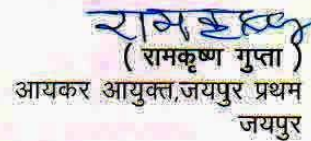 रामकृष्ण
( रामकृष्ण गुप्ता )
आयकर आयुक्त,जयपुर प्रथम
जयपुर